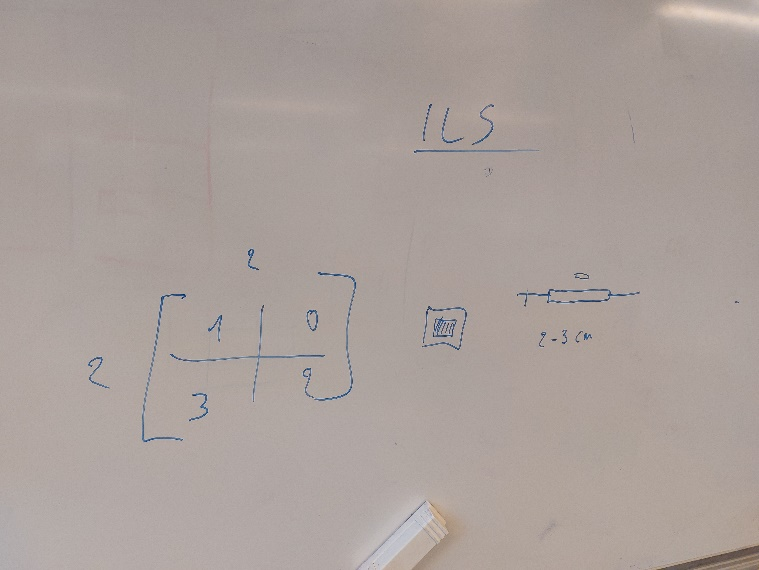 ILS
2
1 0
2
3 2
2-3 cm